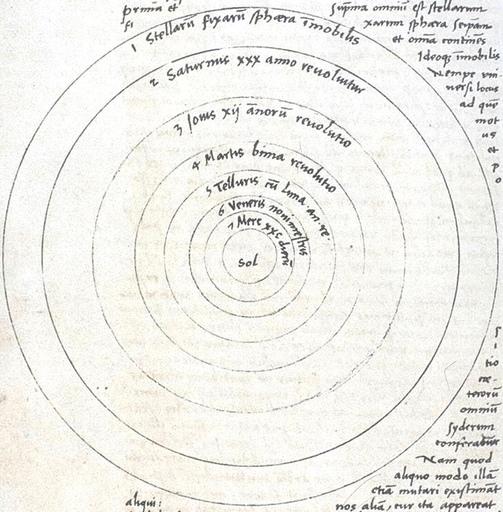 primū et
fi
supma omniū est stellarum
xarum sphæra seipam
et omīa continēs
Ideoq; īmobilis
Nempe uni
uersi locus
ad quē
mot
us
et
p
o
1 Stellarū fixarū sphæra īmobilis
2 Saturnus xxx anno reuoluitur
3 Iouis xij annorū reuolutio
4 Martis bima reuolutio
5 Telluris cū luna . an . re .
6 Veneris nonimestris
7 Merc xxc dierū
Sol
tio
terorū
omniū
syderum
conferatur
Nam quod
aliquo modo illā
etiā mutari existimāt
aliqui:
nos aliā, cur ita appareat